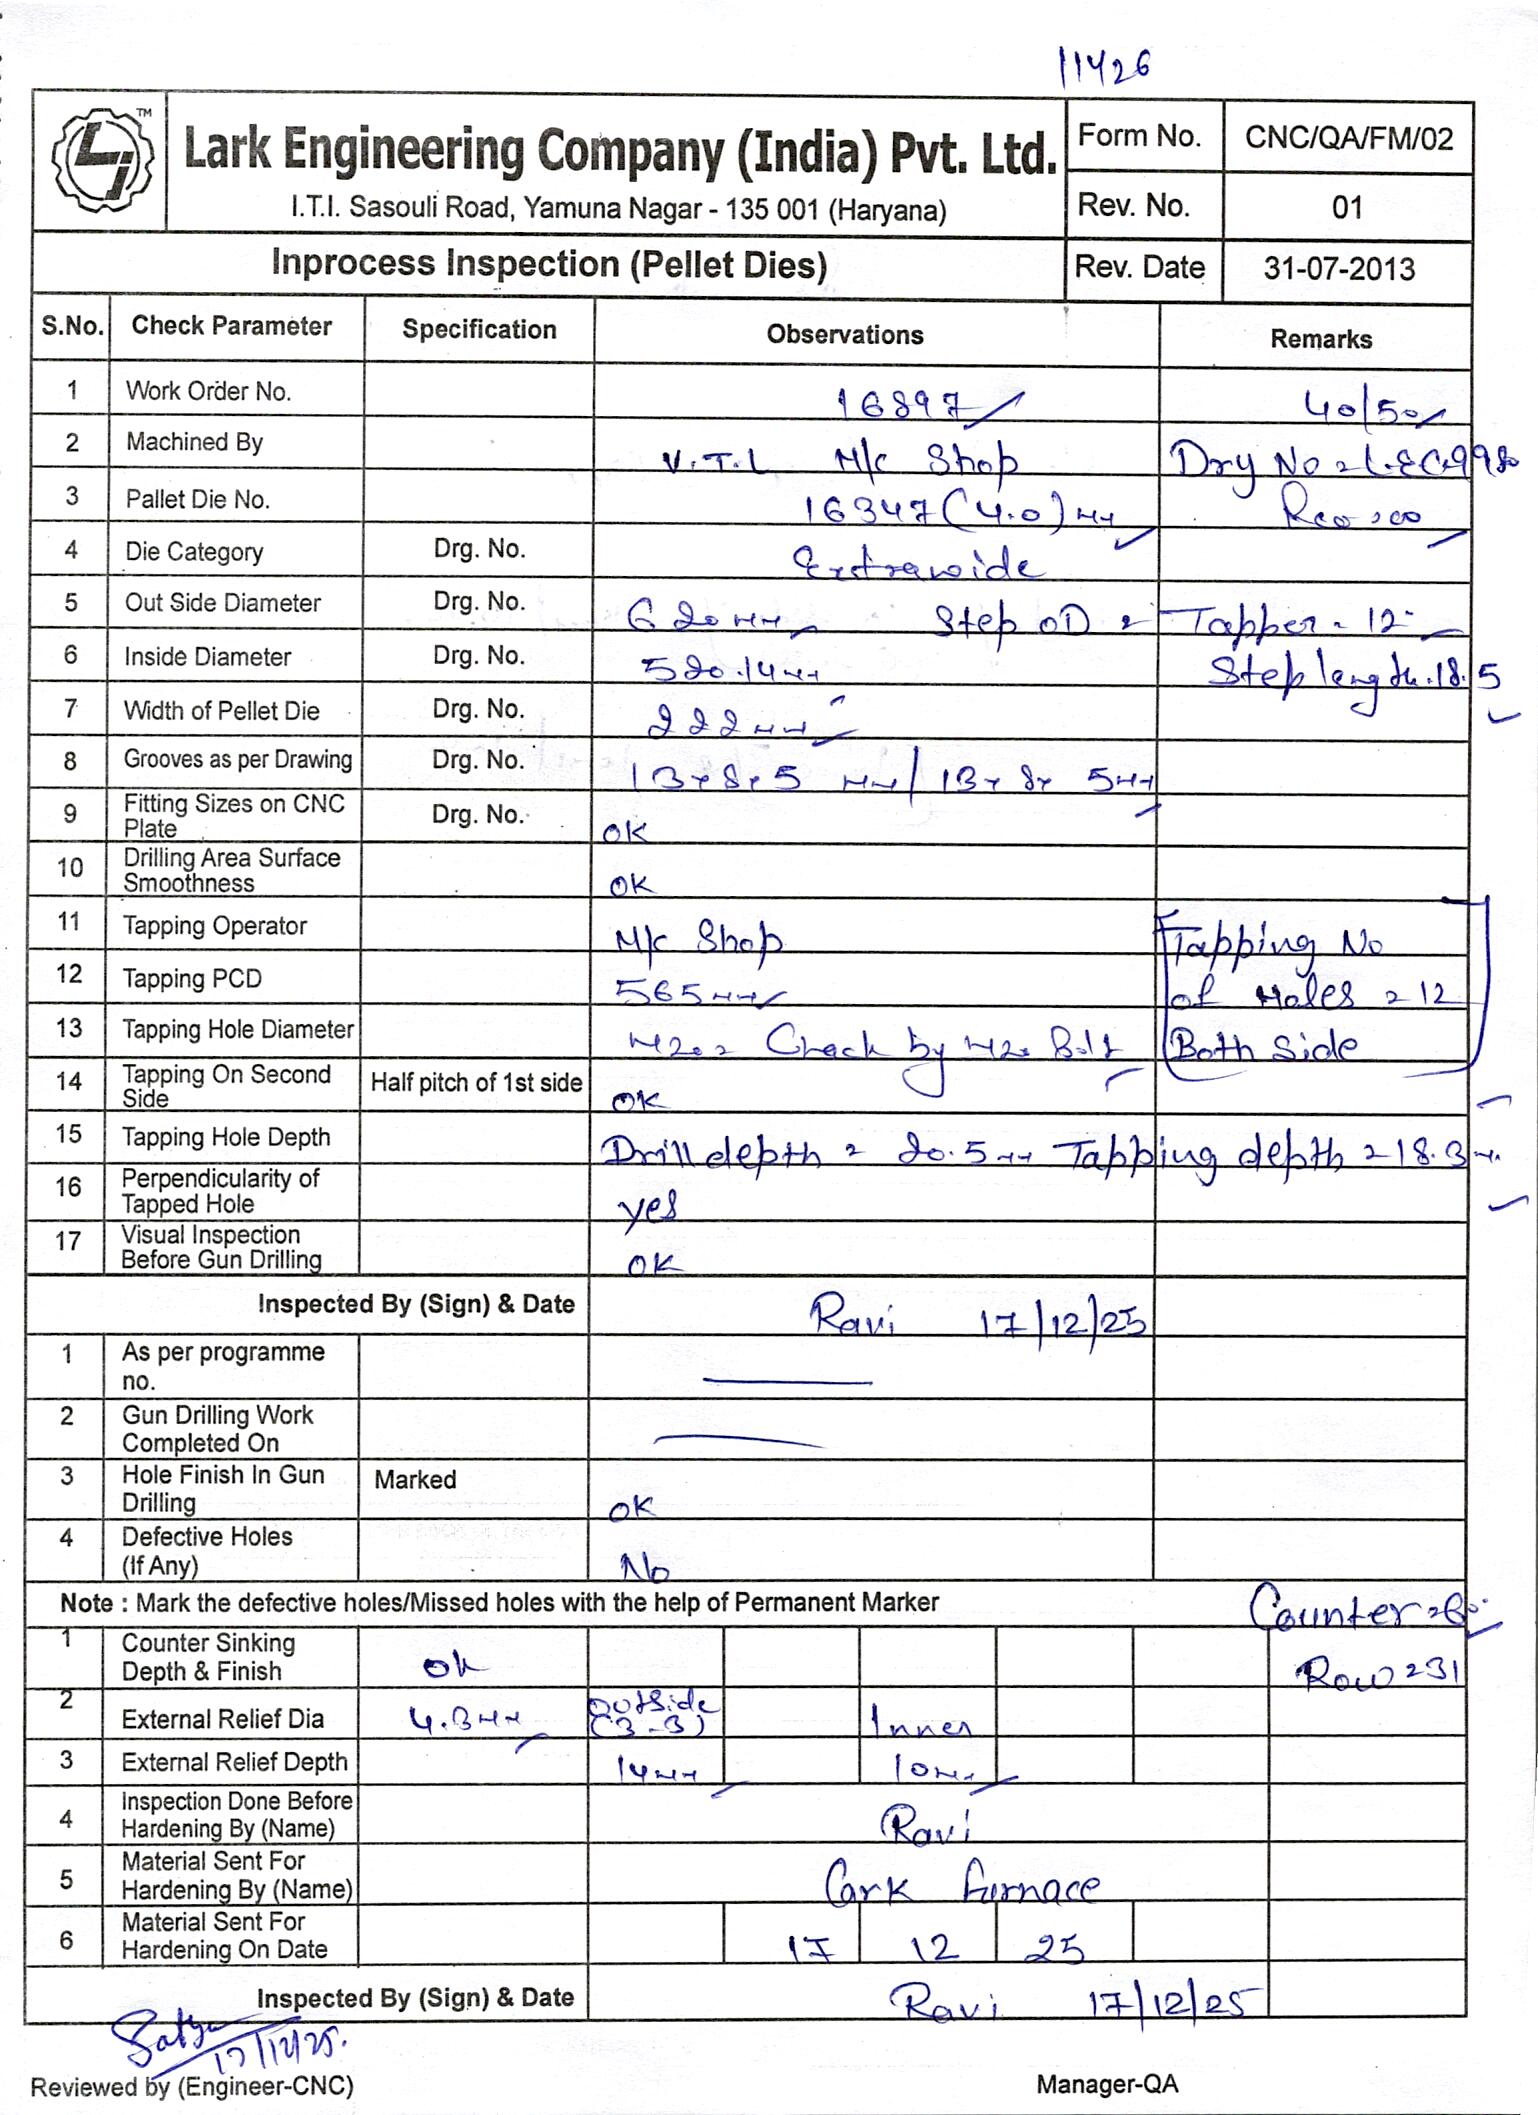 11426
TM
Lark Engineering Company (India) Pvt. Ltd.
I.T.I. Sasouli Road, Yamuna Nagar - 135 001 (Haryana)
Form No. CNC/QA/FM/02
Rev. No. 01
Inprocess Inspection (Pellet Dies) Rev. Date 31-07-2013
S.No. Check Parameter Specification Observations Remarks
1 Work Order No. 16897 40/50
2 Machined By V.T.L M/c Shop Dry No = LEC-998
3 Pallet Die No. 16347 (4.0) mm
4 Die Category Drg. No. Extrawide
5 Out Side Diameter Drg. No. 620 mm Step OD = Tapper - 12
6 Inside Diameter Drg. No. 520.14 mm Step length - 18.5
7 Width of Pellet Die Drg. No. 222 mm
8 Grooves as per Drawing Drg. No. 13x8x5 mm / 13x8x5 mm
9 Fitting Sizes on CNC Plate Drg. No. OK
10 Drilling Area Surface Smoothness OK
11 Tapping Operator M/c Shop Tapping No
12 Tapping PCD 565 mm of Holes = 12
13 Tapping Hole Diameter M20 = Check by M20 Bolt Both Side
14 Tapping On Second Side Half pitch of 1st side OK
15 Tapping Hole Depth Drill depth = 20.5 mm Tapping depth = 18.3 m
16 Perpendicularity of Tapped Hole yes
17 Visual Inspection Before Gun Drilling OK
Inspected By (Sign) & Date Ravi 17/12/25
1 As per programme no.
2 Gun Drilling Work Completed On
3 Hole Finish In Gun Drilling Marked OK
4 Defective Holes (If Any) No
Note : Mark the defective holes/Missed holes with the help of Permanent Marker Counter = 60
1 Counter Sinking Depth & Finish Ok Row = 31
2 External Relief Dia 4.3 mm Outside (3-3) Inner
3 External Relief Depth 14 mm 10 mm
4 Inspection Done Before Hardening By (Name) Ravi
5 Material Sent For Hardening By (Name) Lark furnace
6 Material Sent For Hardening On Date 17 12 25
Inspected By (Sign) & Date Ravi 17/12/25
17/12/25.
Reviewed by (Engineer-CNC) Manager-QA